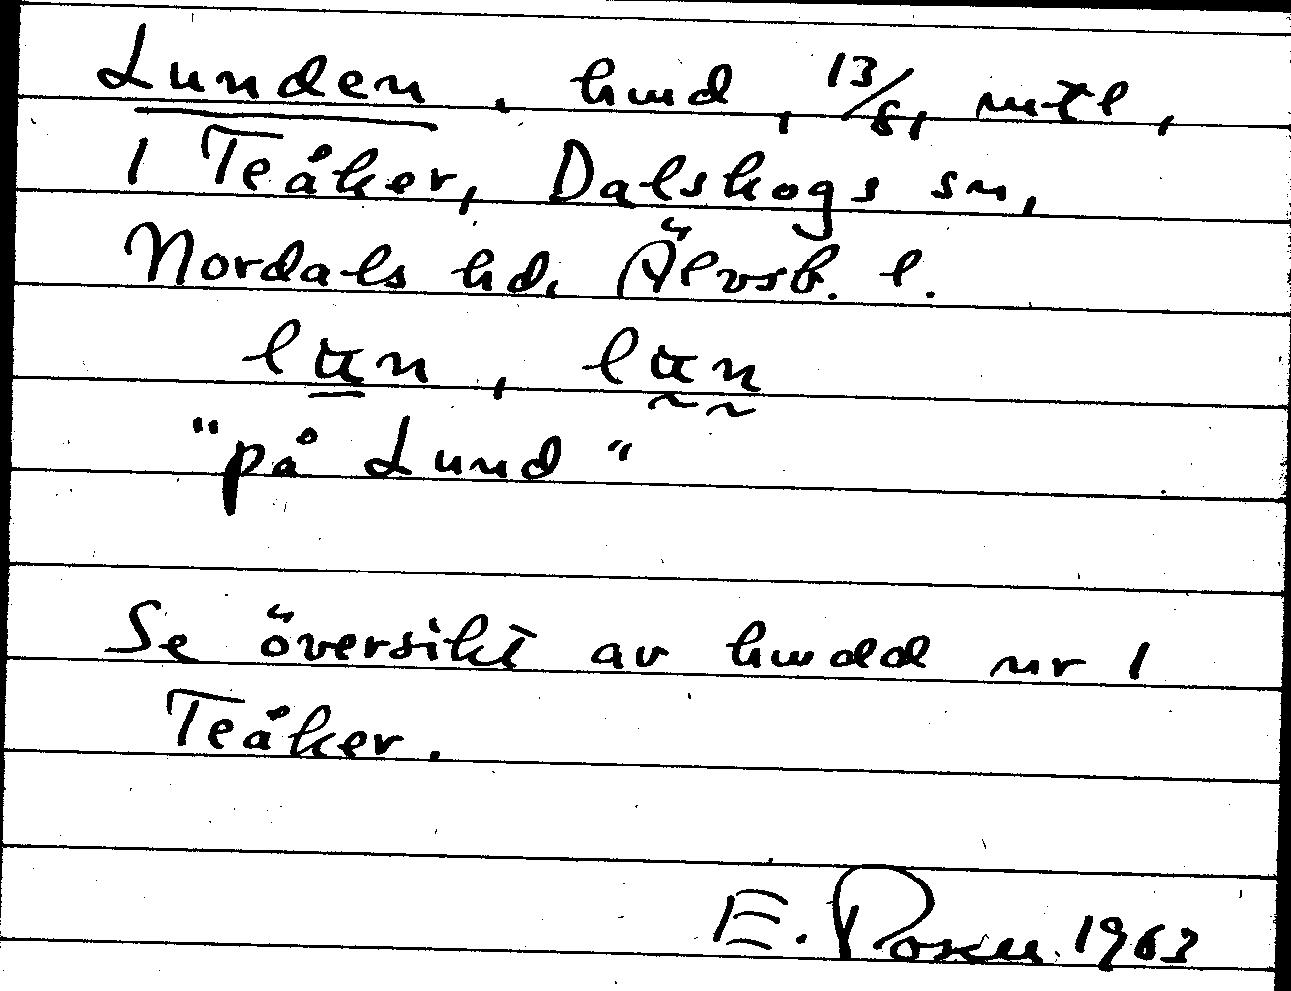 Lunden. hmd, 13/8, mtl,
1 Teåker, Dalskogs sn,
Nordals hd. Älvsb. l.
lun, lun
"på Lund"
Se översikt av hmdd nr 1
Teåker.
E. 1963